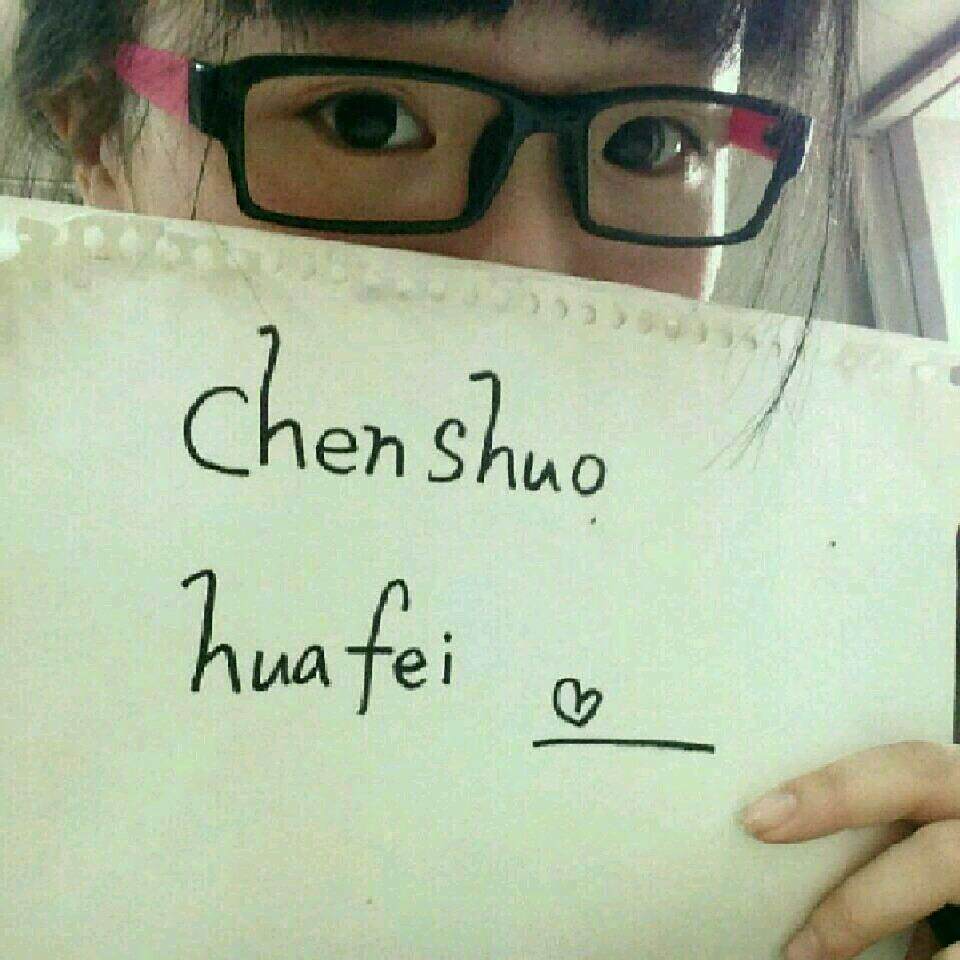 chen shuo
hua fei